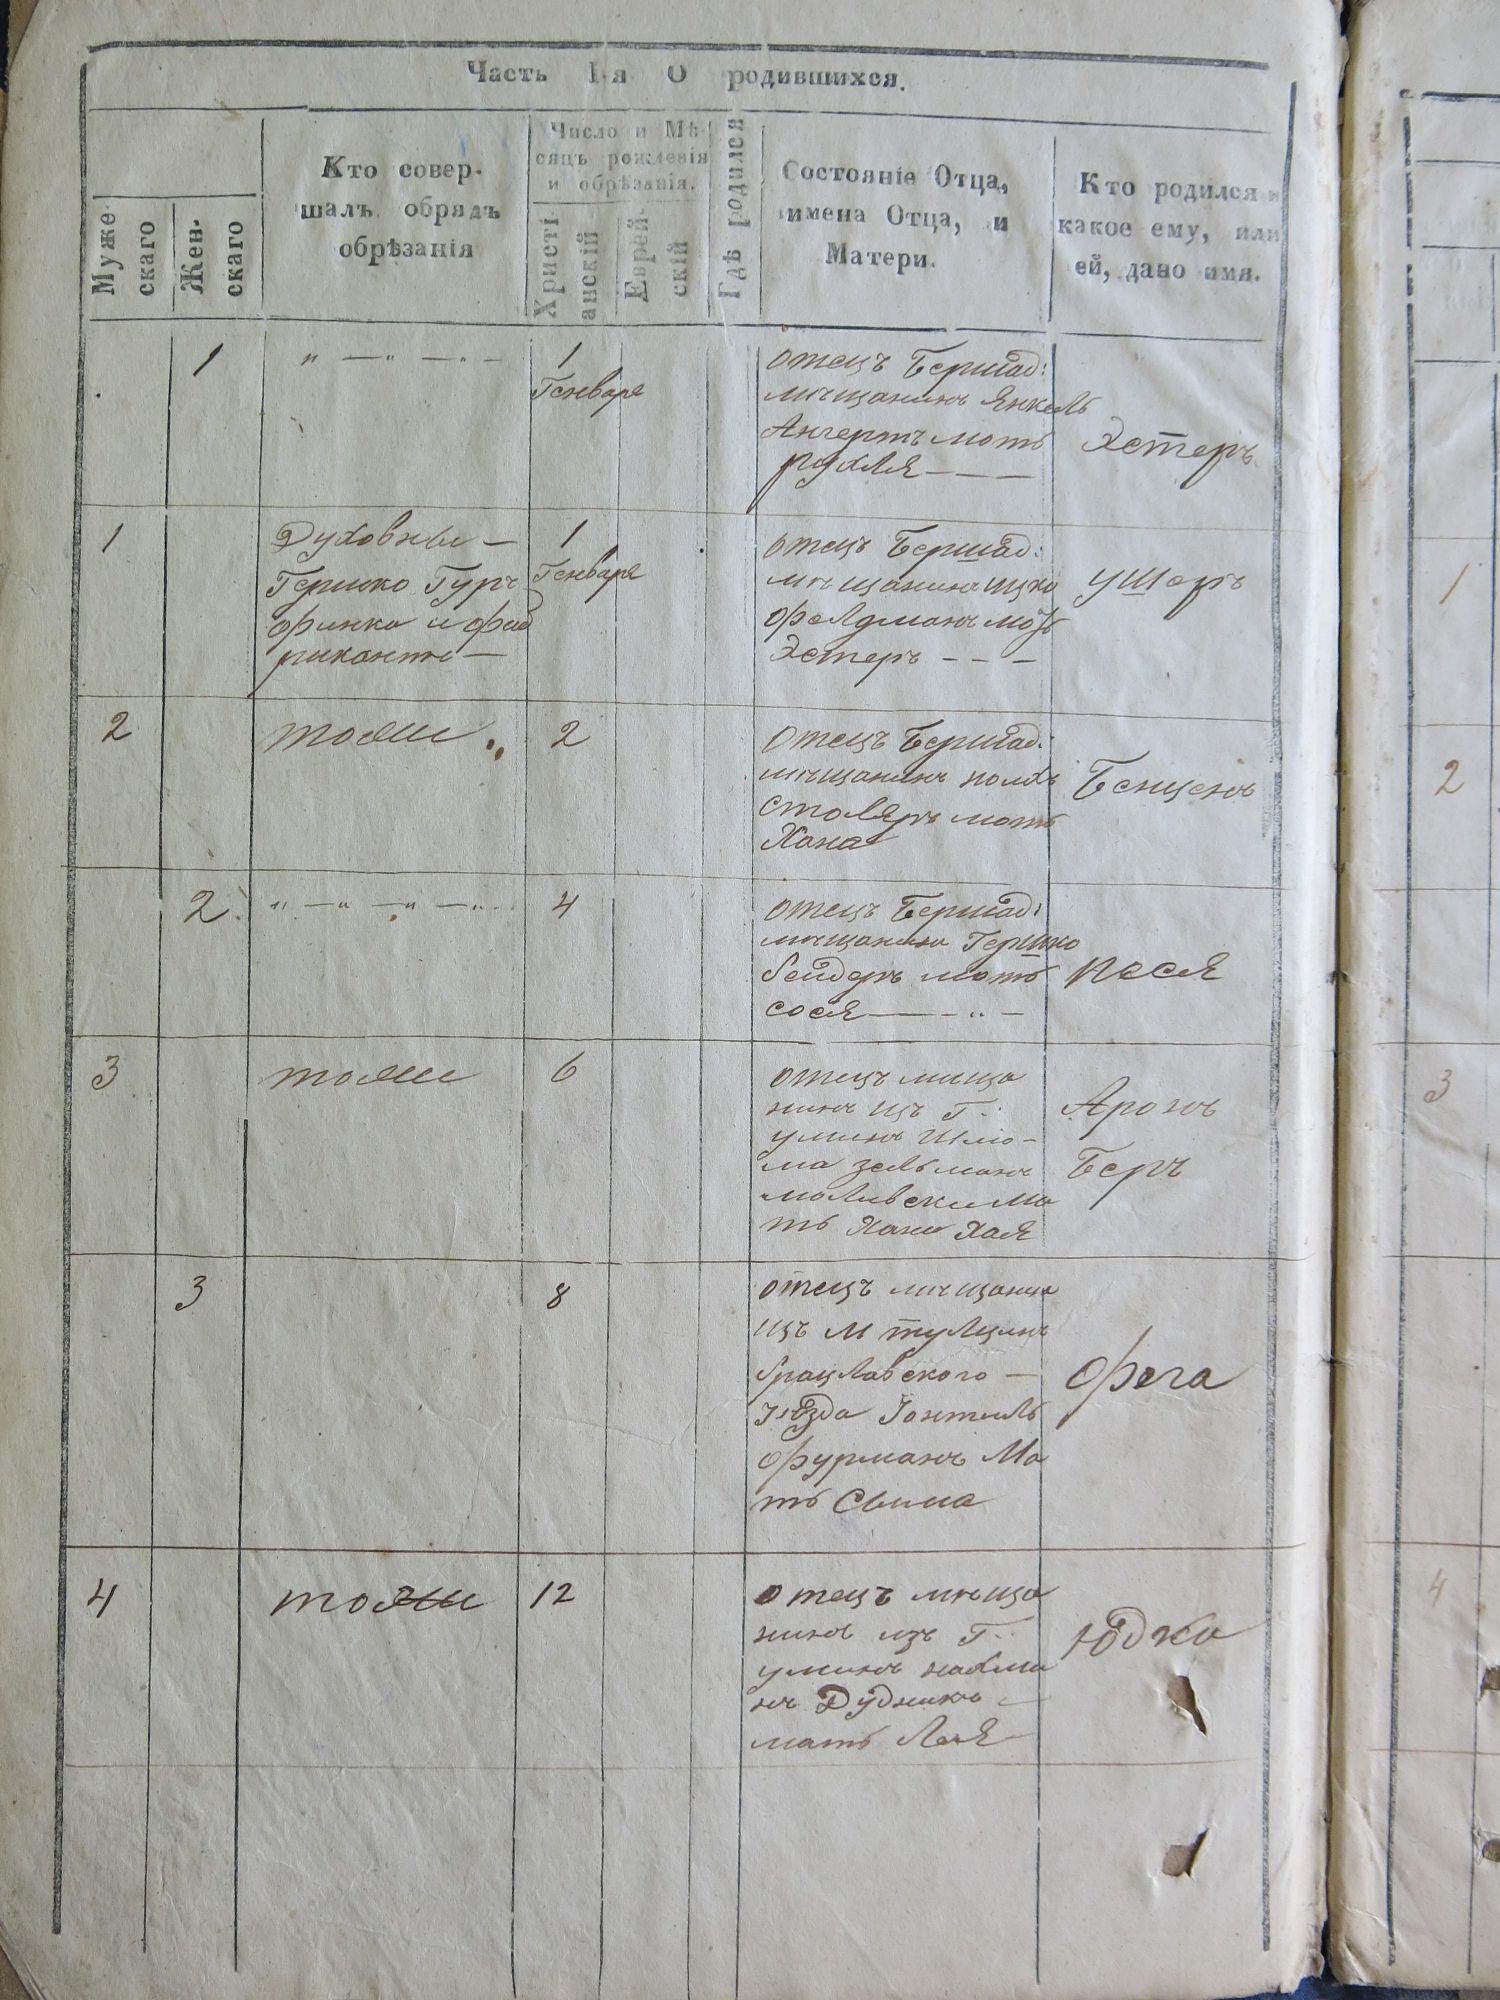 Часть I-я О родившихся.
Муже-
скаго
Жен-
скаго
Кто совер-
шалъ обрядъ
обрѣзанія
Число и Мѣ-
сяцъ рожденія
и обрѣзанія.
Христі-
анскій
Еврей-
скій
Гдѣ родился
Состояніе Отца,
имена Отца, и
Матери.
Кто родился и
какое ему, или
ей, дано имя.
1
" — " — " —
1
Генваря
отецъ Бершад:
мѣщанинъ Янкель
мать
рухля — —
Эстеръ
1
Духовныи —
Гершко Гур
и
—
1
Генваря
отецъ Бершад:
мѣщанинъ Ицко
Фелдманъ мать
Эстеръ - - -
Ушеръ
2
тояжи
2
отецъ Бершад:
мѣщанинъ
столяръ мать
Хана
Бенценъ
2
" — " — " — "
4
отецъ Бершад:
мѣщанинъ Гершко
бейдеръ мать
сося — - " —
Песя
3
тояжи
6
отецъ мища
нинъ изъ Г.
уминъ Шмо-
ма зельманъ
ма
ть Хая
Аронъ
Беръ
3
8
отецъ мѣщанин
изъ М тульчинъ
брацлавского —
уѣзда
Фурманъ Ма
ть Сима
Фега
4
тояжи
12
отецъ мѣща
нинъ изъ Г.
уминъ нахма
нъ Дудникъ —
мать Лея
Юдко
1
2
3
4